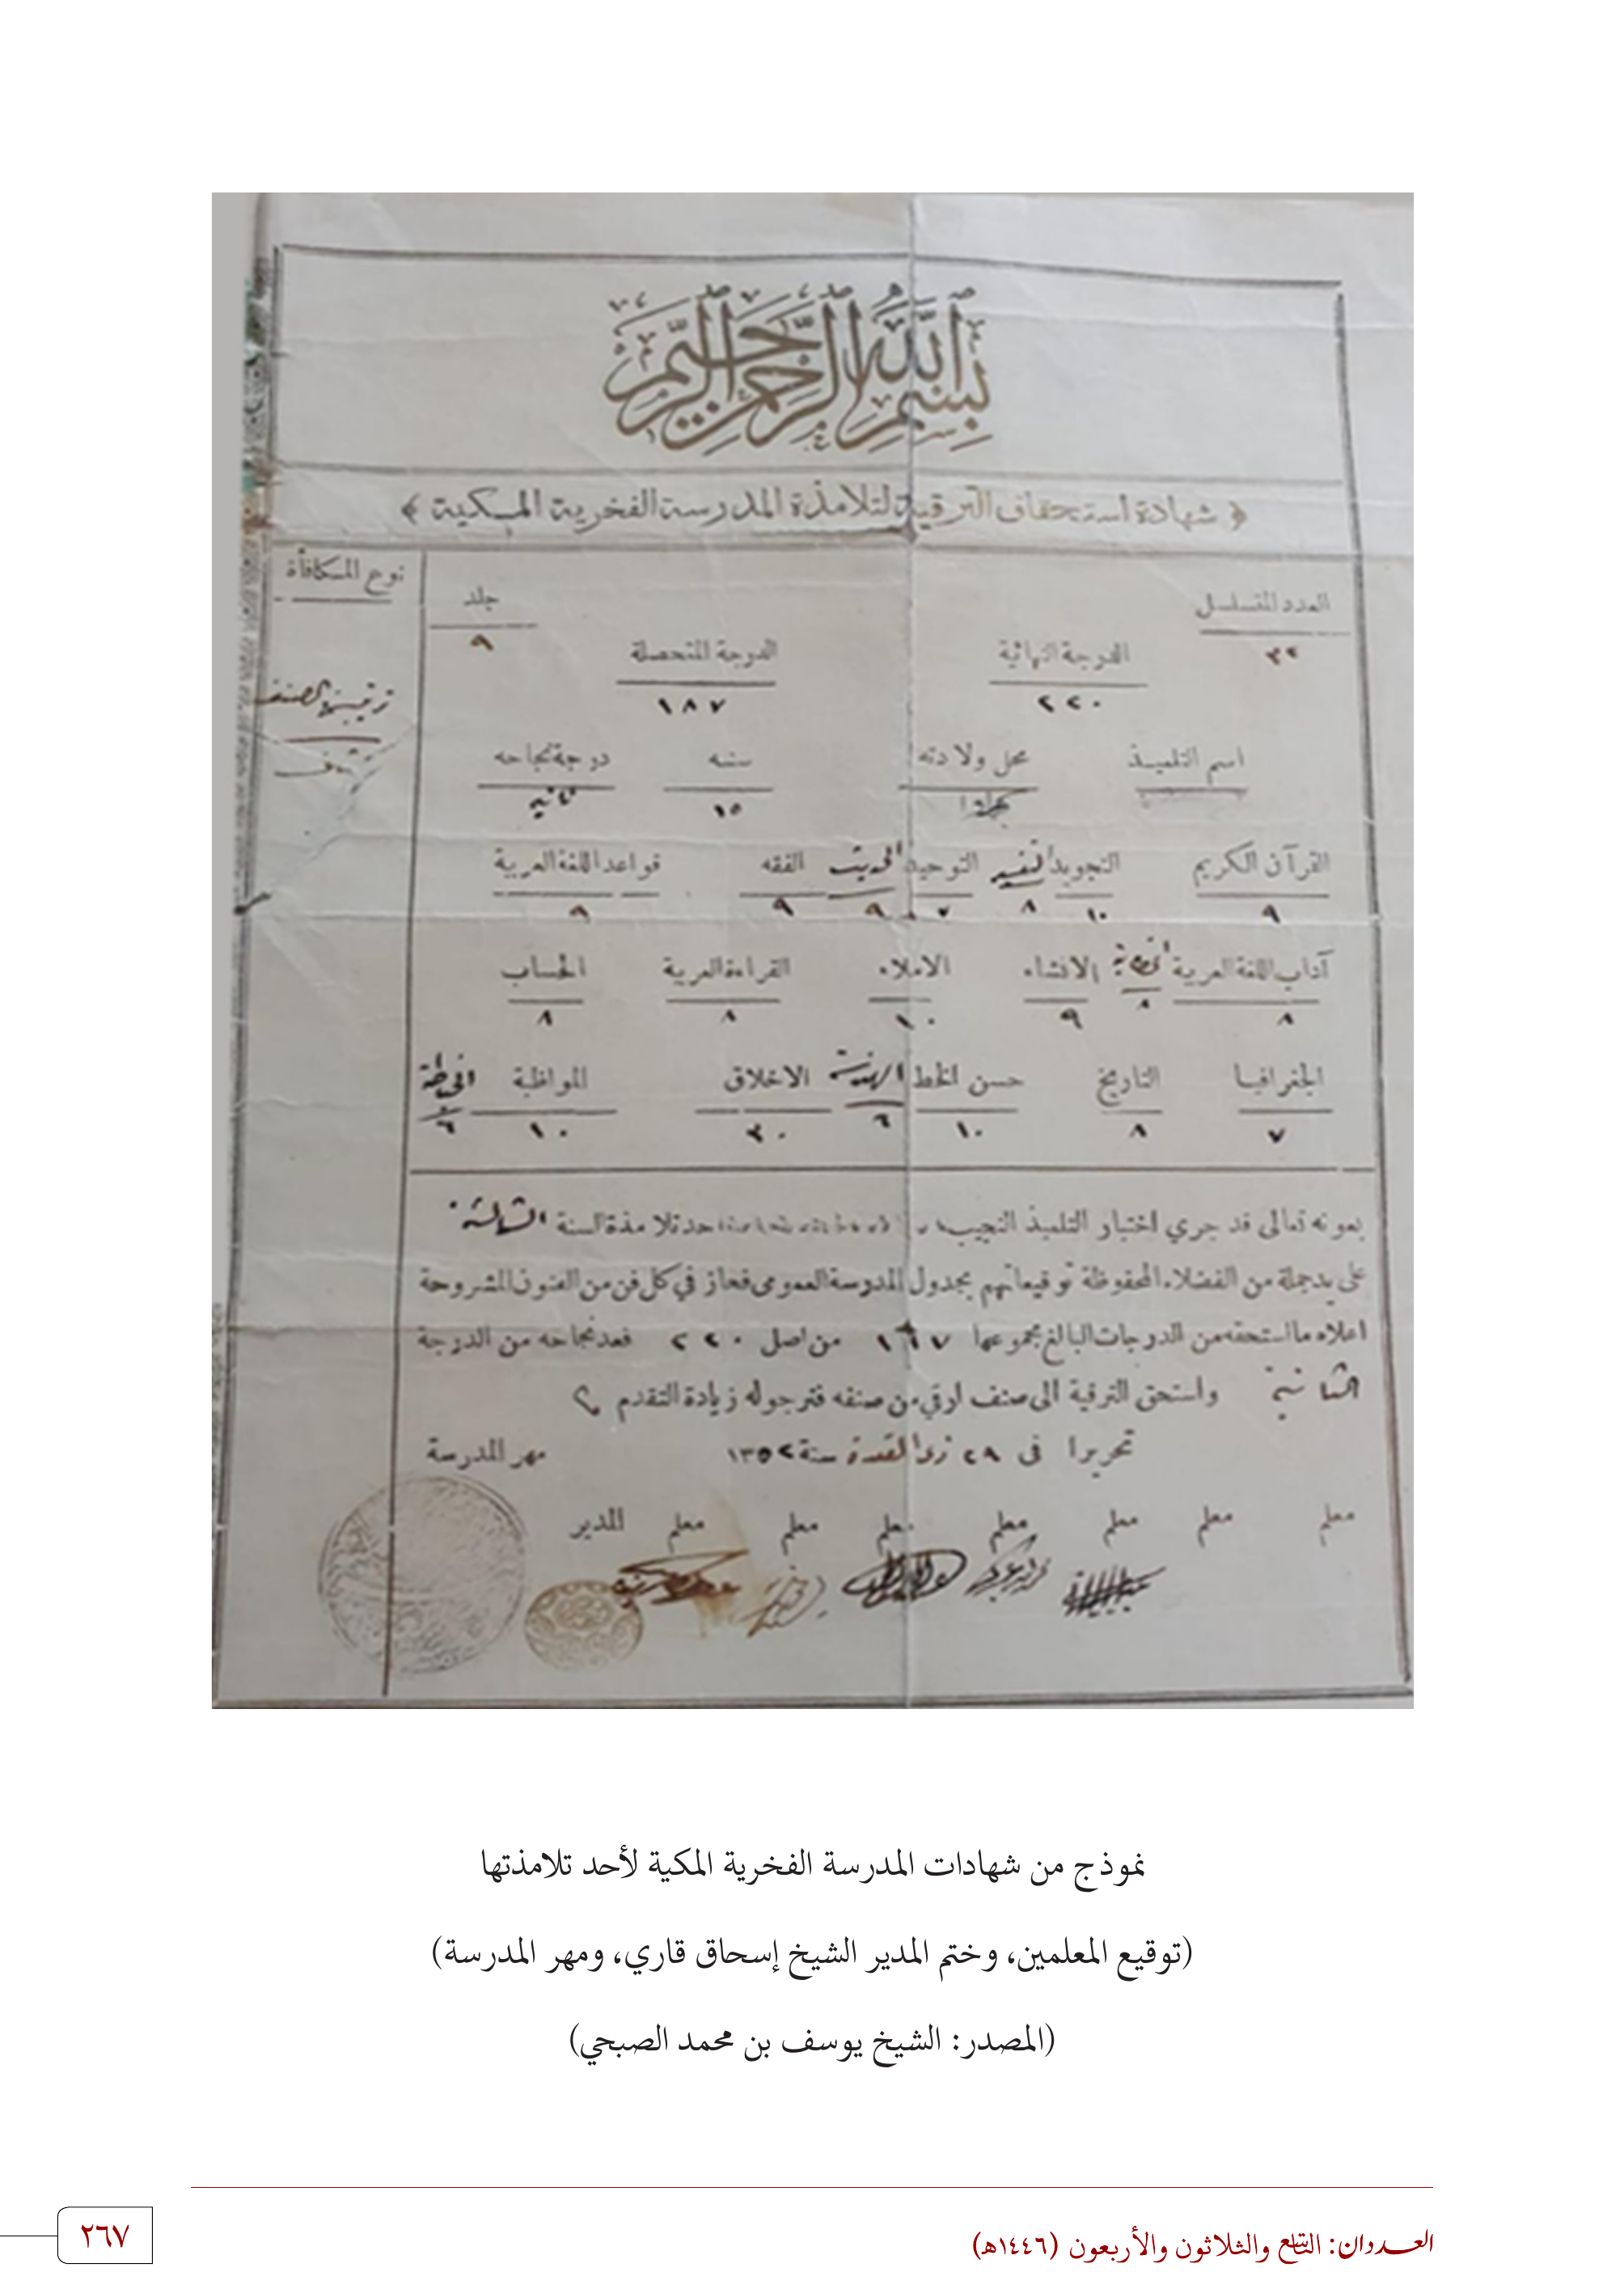 بسم الله الرحمن الرحيم
﴿ شهادة استحقاق الترقية لتلامذة المدرسة الفخرية المكية ﴾
العدد المتسلسل جلد نوع المكافأة
٣٢ ٩
الدرجة النهائية الدرجة المتحصلة
٢٢٠ ١٨٧
اسم التلميذ محل ولادته سنه درجة نجاحه
١٥ ثانيه
القرآن الكريم التجويد التفسير التوحيد الحديث الفقه قواعد اللغة العربية
٩ ١٠ ٨ ٧ ٩ ٩ ٩
آداب اللغة العربية الانشاء الاملاء القراءة العربية الحساب
٨ ٨ ٩ ١٠ ٨ ٨
الجغرافيا التاريخ حسن الخط الهندسة الاخلاق المواظبة
٧ ٨ ١٠ ٦ ٢٠ ١٠ ٦
بعونه تعالى قد جري اختبار التلميذ النجيب احد تلامذة السنة الثالثة
على يد جملة من الفضلاء المحفوظة توقيعاتهم بجدول المدرسة العمومى فحاز في كل فن من الفنون المشروحة
اعلاه ما استحقه من الدرجات البالغ مجموعها ١٨٧ من اصل ٢٢٠ فعد نجاحه من الدرجة
الثانية واستحق الترقية الى صنف ارقي من صنفه فنرجو له زيادة التقدم
تحريرا فى ٢٨ ذى القعدة سنة ١٣٥٢ مهر المدرسة
معلم معلم معلم معلم معلم معلم معلم المدير
نموذج من شهادات المدرسة الفخرية المكية لأحد تلامذتها
(توقيع المعلمين، وختم المدير الشيخ إسحاق قاري، ومهر المدرسة)
(المصدر: الشيخ يوسف بن محمد الصبحي)
العددان: التاسع والثلاثون والأربعون (١٤٤٦هـ)
٢٦٧